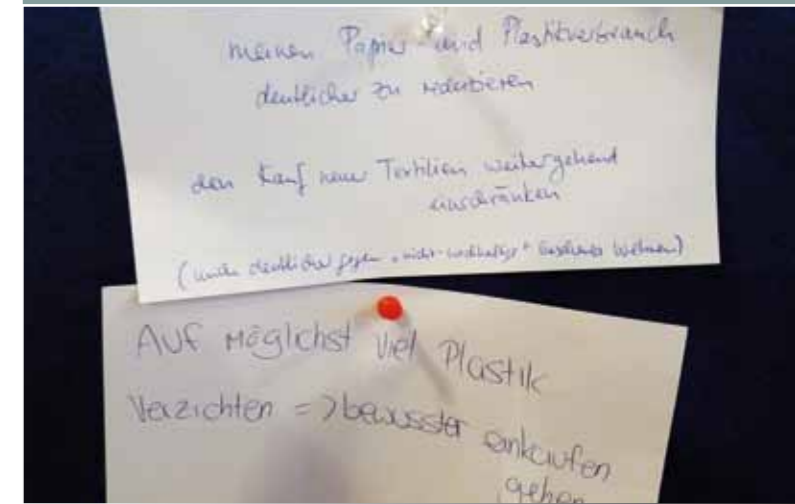 meinen Papier- und Plastikverbrauch
deutlicher zu reduzieren
den Kauf neuer Textilien weitergehend
einschränken
deutlicher gegen "nicht-nachhaltige"
AUF MÖglichst viel Plastik
Verzichten => bewusster einkaufen
gehen